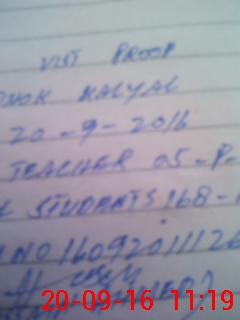 VIST PROOF
KALYAL
20-9-2016
TEACHER 05-P-
STUDENTS 168-
NO 16092011126
20-09-16 11:19